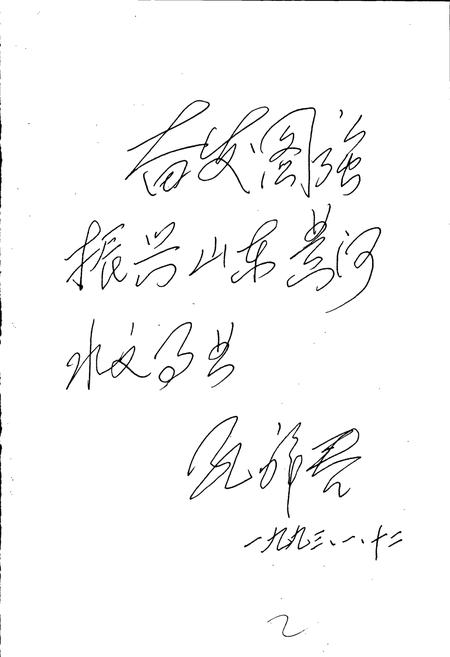 奋发图强
振兴山东黄河
水文事业
一九九三、一、十二
2